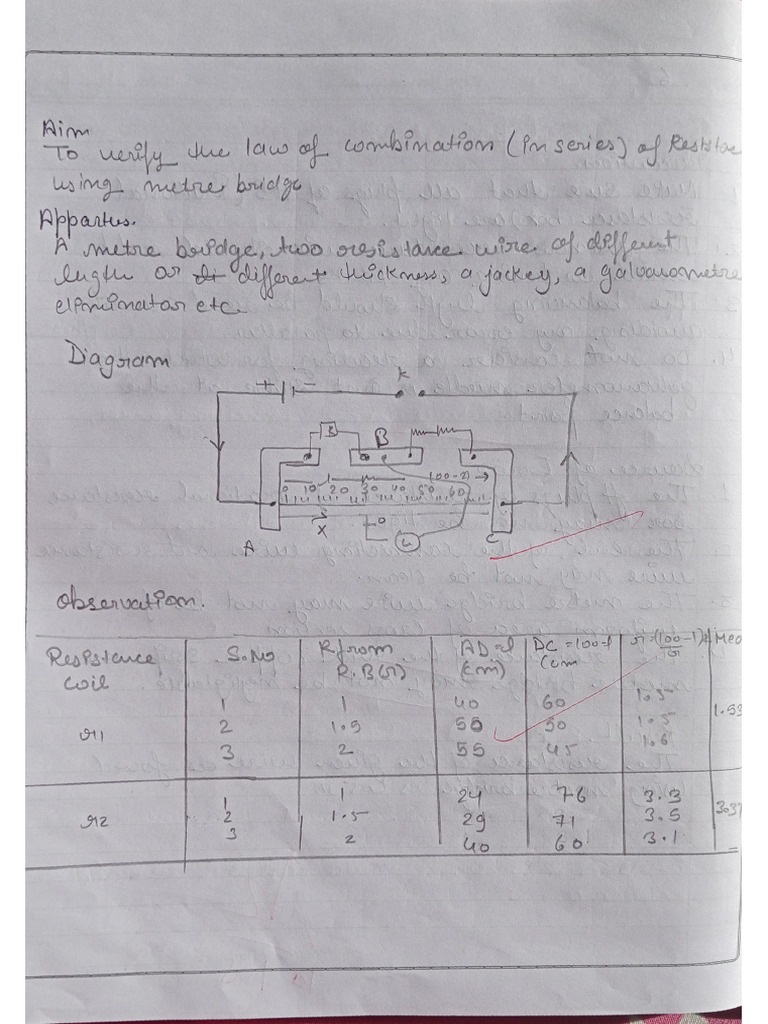 Aim
To verify the law of combination (in series) of Resistae
using metre bridge
Appartus.
A metre bridge, two resistance wire of different
length or different thickness, a jackey, a galvanometre
eliminator etc.
Diagram
+ -
K
R
B
(100-l) →
0 10 20 30 40 50 60
X
G
A
C
Observation.
Resistence coil | S.No | R from R.B(Ω) | AD=l (cm) | DC=100-l (cm | Mea
r1 | 1 | 1 | 40 | 60 | 1.5
2 | 1.5 | 50 | 50 | 1.5
3 | 2 | 55 | 45 | 1.6
1.53
r2 | 1 | 1 | 24 | 76 | 3.3
2 | 1.5 | 29 | 71 | 3.5
3 | 2 | 40 | 60 | 3.1